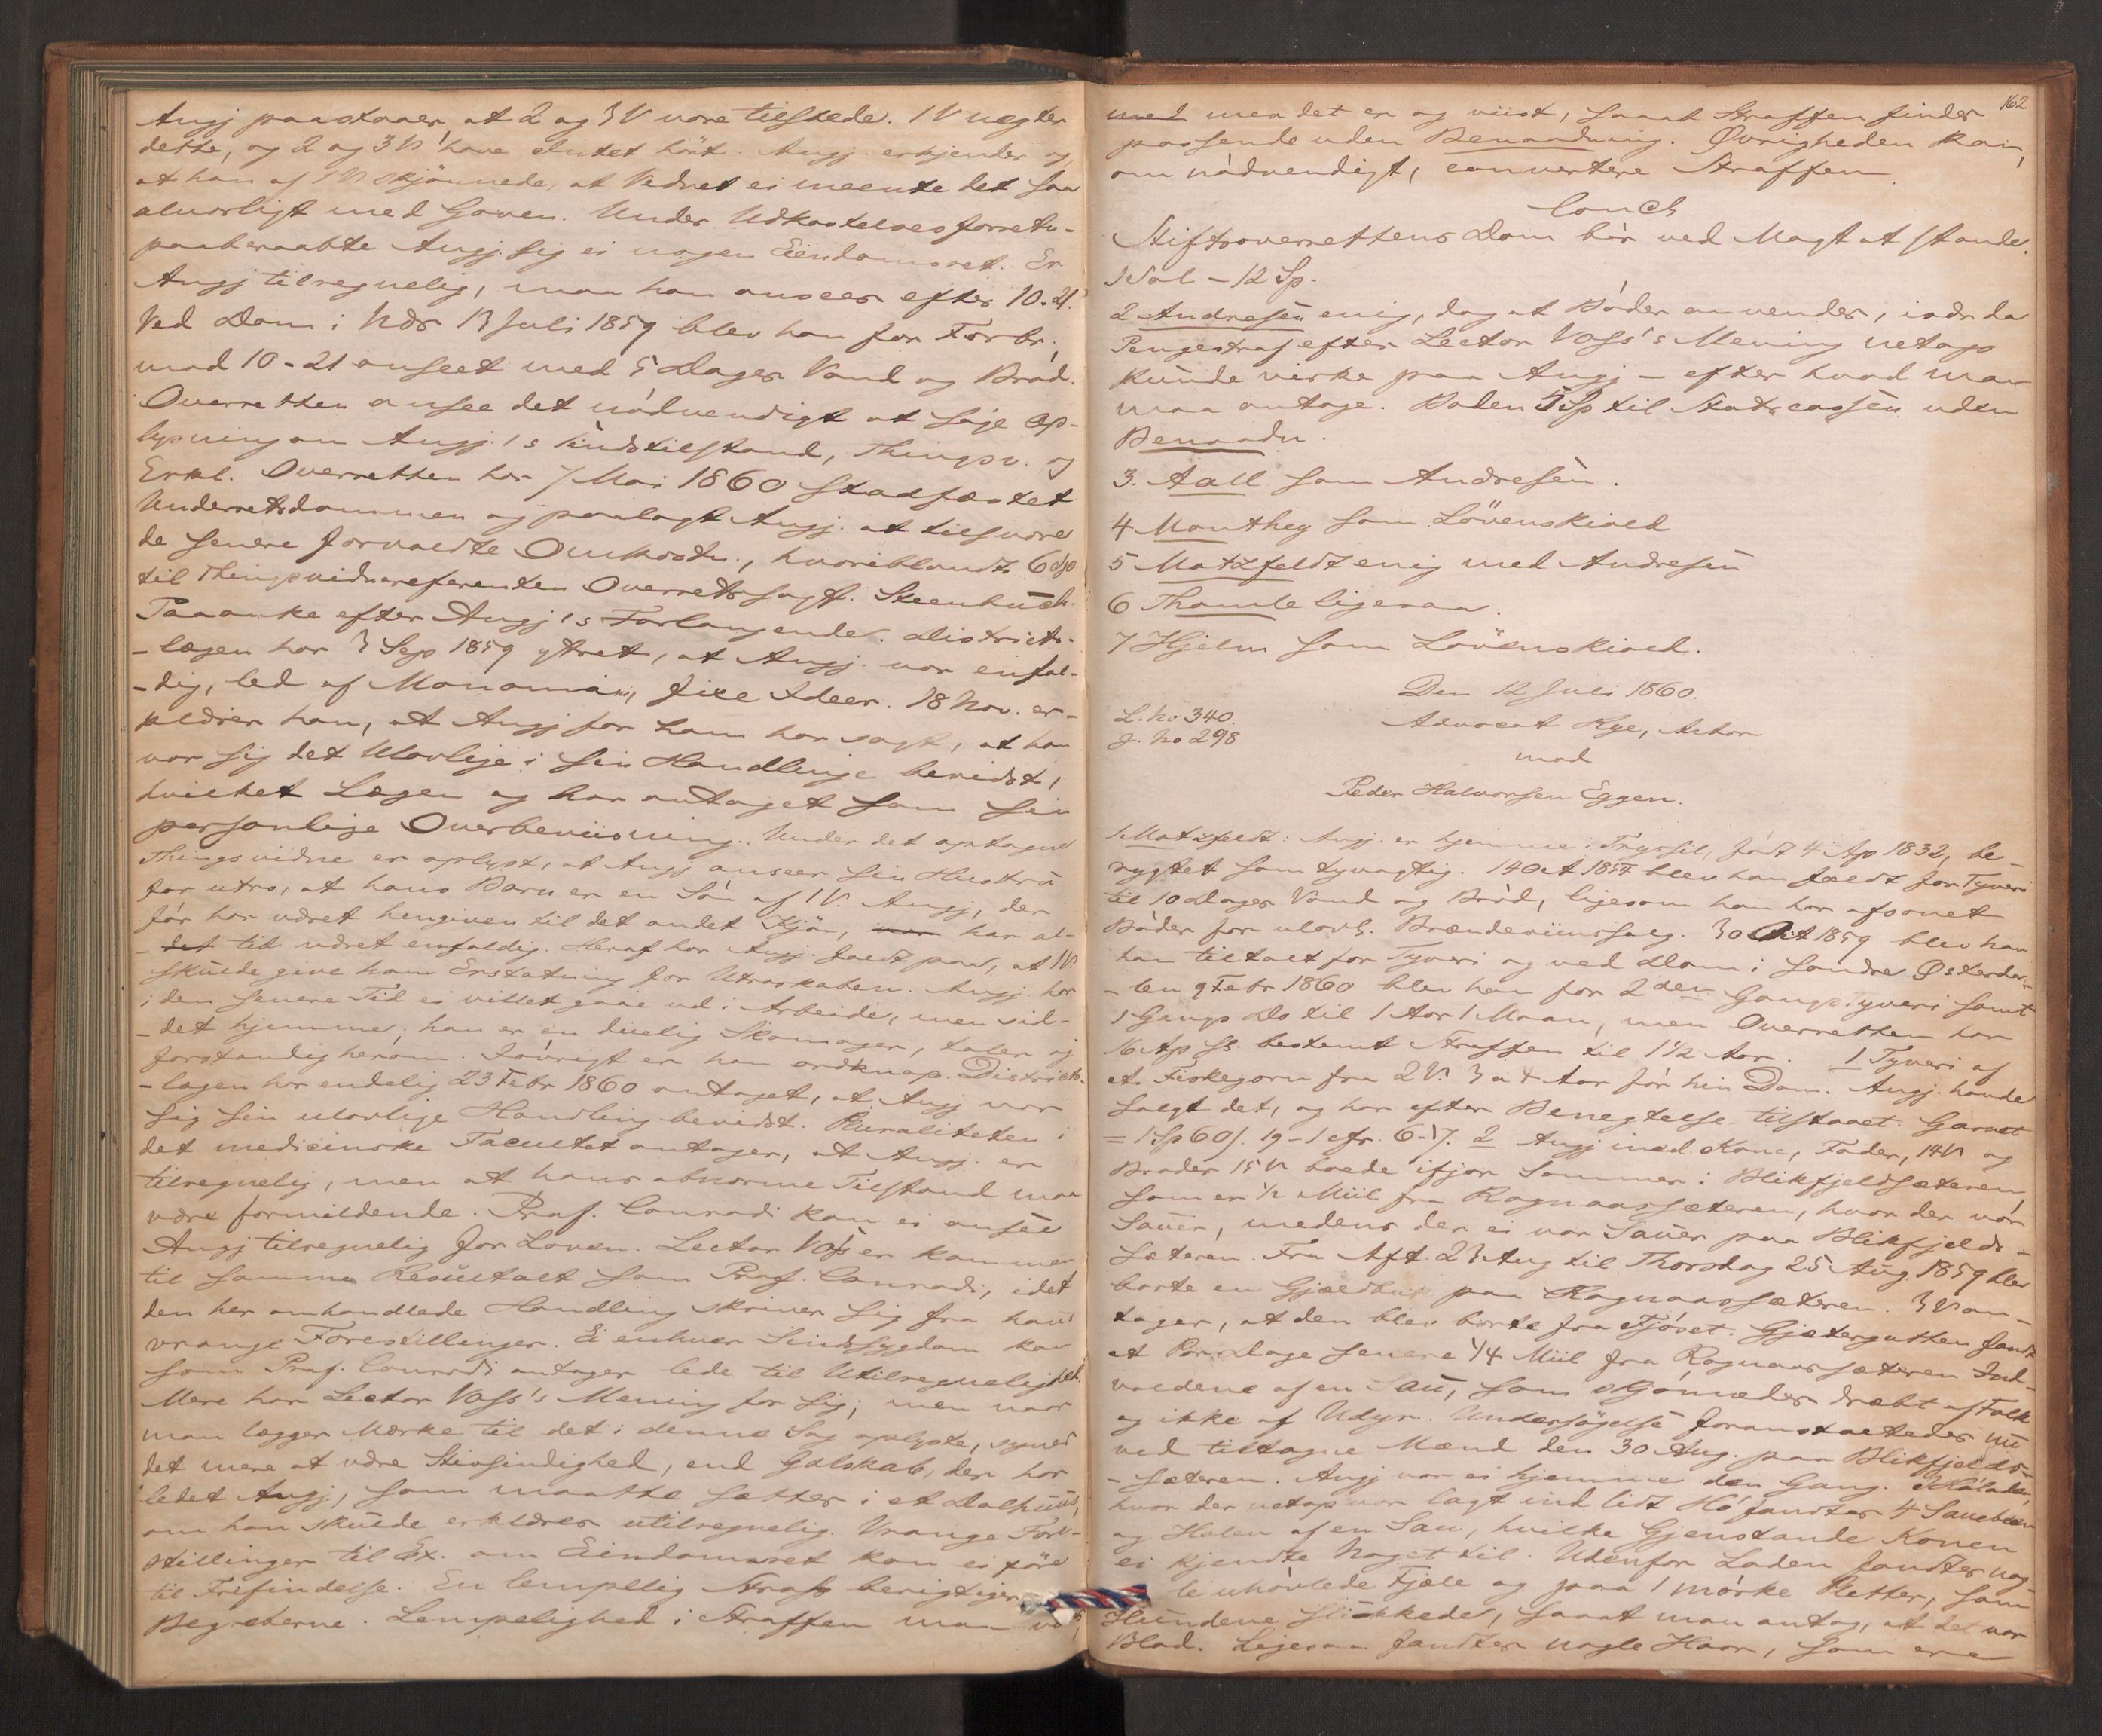 Angj paastaaer, at 2 og 3 V vare tilstede. 1 V nægter
dette, og 2 og 3 V have Intet hört. Angj. erkjender og
at han af 1 V skjönnede, at Vedret ei meente det saa
alvorligt med Gaven. Under Udkastelsesforretn-
paaberaabte Angj. sig ei nogen Eiendomsret. Er
Angj tilregnelig, maa han ansees efter 10-21.
Ved Dom i Nds 13 Juli 1859 blev han for Forbr.
mod 10-21 anseet med 5 Dages Vand og Bród.
Overretten ansee det nódvendigt at söge Op-
lysning om Angj.'s Sindstilstand, Thingsv. og
Erkl. Overretten har 7 Mai 1860 stadfæstet
Underretsdommen og paalagt Angj. at tilsvare
de senere forvoldte Omkostn., hvoriblandt 6 Sp
til Thingsvidnereferenten Overretssagf. Steenbuch.
Paaanke efter Angj's Forlangende. Districts-
-lægen har 3 Sep 1859 yttret, at Angj. var enfol-
-dig, led af Monomani, fixe Ideer. 18 Nov. er-
klærer han, at Angj for ham har sagt, at han
var sig det Ulovlige i sin Handling bevidst,
hvilket Lægen og har antaget som sin
personlige Overbeviisning. Under det optagne
Thingsvidne er oplyst, at Angj anseer sin Hustru
for utro, at hans Barn er en Són af 1 V. Angj, der
fór har været hengiven til det andet Kjön, har al-
- tid været enfoldig. Heraf har Angj. faldt paa, at 1 V
skulde give ham Erstatning for Utroskaben. Angj. har
i den senere Tid ei villet gaae ud i Arbeide, men sid-
-det hjemme; han er en duelig Skomager, taler og
forstandig herom. Ióvrigt er han ordknap. Districts-
-lægen har endelig 23 Febr 1860 antaget, at Angj var
sig sin ulovlige Handling bevidst. Pluraliteten i
det medicinske Facultet antager, at Angj. er
tilregnelig, men at hans abnorme Tilstand maa
være formildende. Prof. Conradi kan ei ansee
Angj tilregnelig for Loven. Lector Voss er kommen
til samme Resultalt som Prof. Conradi, idet
den her omhandlede Handling skriver sig fra hans
vrange Forestillinger. Ei enhver Sindssygdom kan
som Prof. Conradi antager lede til Utilregnelighed.
Mere har Lector Voss's Mening for sig; men naar
man lægger Mærke til det i denne Sag oplyste, synes
det mere at være Stivsindighed, end Galskab, der har
ledet Angj., som maatte sættes i et Dolhuus,
om han skulde erklæres utilregnelig. Vrange Fore-
stillinger til Ex. om Eiendomsret kan ei före
til Frifindelse. En lempelig Straf berigtiger
Begreberne. Lempelighed i Straffen maa
162
med men det er og viist, saaat Straffen findes
passende uden Benaadning. Øvrigheden kan,
om nódvendigt, convertere Straffen.
Concl
Stiftsoverrettens Dom bór ved Magt at stande.
1 Sal - 12 Sp.
2 Andresen enig, dog at Bóder anvendes, isdr da
Pengestraf efter Lector Voss's Mening netop
kunde virke paa Angj - efter hvad man
maa antage. Boden 5 Sp til Statscassen uden
Benaadn.
3. Aall som Andresen.
4 Manthey som Lövenskiold
5 Motzfeldt enig med Andresen
6 Thomle ligesaa.
7 Hjelm som Lövenskiold.
Den 12 Juli 1860.
L. No 340.
J. No 298
Advocat Rye, Actor
mod
Peder Halvorsen Eggen.
1 Motzfeldt: Angj. er hjemme i Trysil, fódt 4 Ap 1832, be-
rygtet som tyvagtig. 14 Oct 1854 blev han fældt for Tyveri
til 10 Dages Vand og Bród, ligesom han har afsonet
Bóder for ulovl. Brændeviinssalg. 30 Oct 1859 blev han
han tiltalt for Tyveri og ved Dom i Sondre Østerda-
-len 9 Febr 1860 blev han for 2den Gangs Tyveri samt
1 Gangs Do til 1 Aar 1 Maan, men Overretten har
16 Ap ss. bestemt Straffen til 1 1/2 Aar. 1 Tyveri af
et Fiskegarn fra 2 V. 3 a 4 Aar fór hin Dom. Angj. havde
solgt det, og har efter Benegtelse tilstaaet. Garnet
= 1 Sp 60 s. 19-1 cfr. 6-17. 2 Angj med Kone, Fader, 14 V og
Broder 15 V boede ifjor Sommer i Blikfjeldsæteren,
som er 1/2 Miil fra Rognaassæteren, hvor der var
Sauer, medens der ei var Sauer paa Blikfjeld-
sæteren. Fra Aft. 23 Aug til Thorsdag 25 Aug 1859 blev
borte en Gjældbuk paa Rognaassæteren. 3 V an-
tager, at den blev borte fra Fjóset. Gjætergutten fandt
et Par Dage senere 1/4 Miil fra Rognaassæteren Ind-
voldene af en Sau, som skjónnedes dræbt af Folk
og ikke af Udyr. Undersögelse foranstaltedes nu
ved tiltagne Mænd den 30 Aug. paa Blikfjeld-
-sæteren. Angj var ei hjemme den Gang. I Hóladen,
hvor der netop var lagt ind lidt Hó fandtes 4 Saueben
og Halen af en Sau, hvilke Gjenstande Konen
ei kjendte Noget til. Udenfor Laden fandtes nog-
le uhóvlede Fjæle og paa 1 mórke Pletter, som
Hundene slikkede, saaat man antog, at det var
Blod. Ligesaa fandtes nogle Haar, som ere